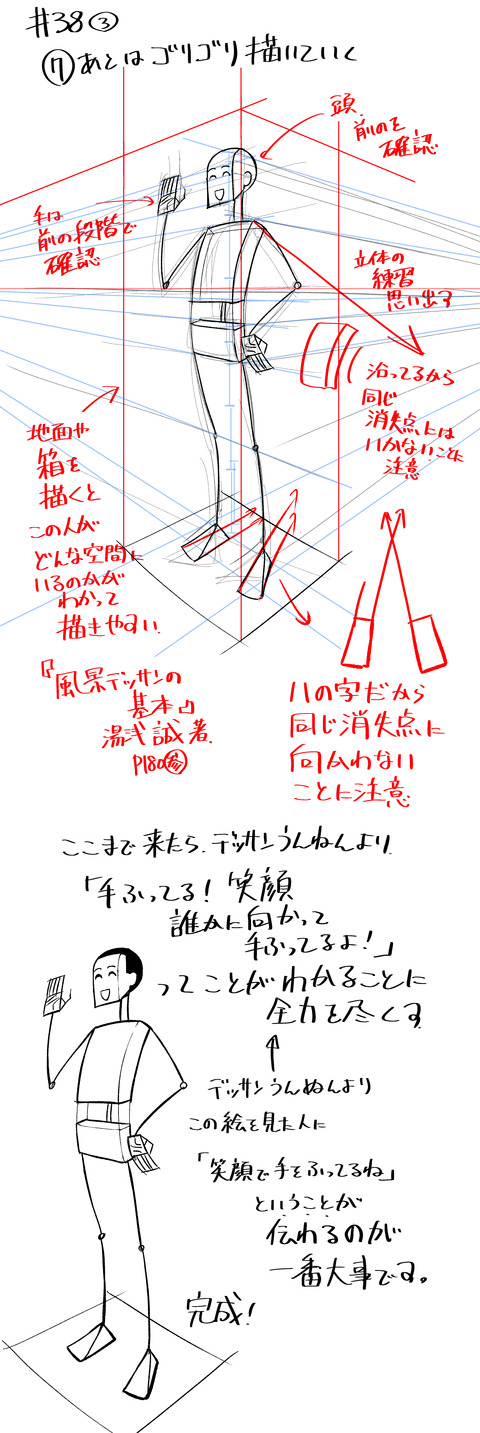 #38③
⑦あとはゴリゴリ描いていく
頭、
前のを
確認
手は
前の段階で
確認
立体の
練習
思い出す
沿ってるから
同じ
消失点には
いかないことに
注意
地面や
箱を
描くと
この人が
どんな空間に
いるのかが
わかって
描きやすい
『風景デッサンの
基本』
湯浅誠著
P180㊂
ハの字だから
同じ消失点に
向かわない
ことに注意
ここまで来たら、デッサンうんぬんより
「手ふってる！笑顔
誰かに向かって
手ふってるよ！」
ってことがわかることに
全力を尽くす
デッサンうんぬんより
この絵を見た人に
「笑顔で手をふってるね」
ということが
伝わるのが
一番大事です。
完成！